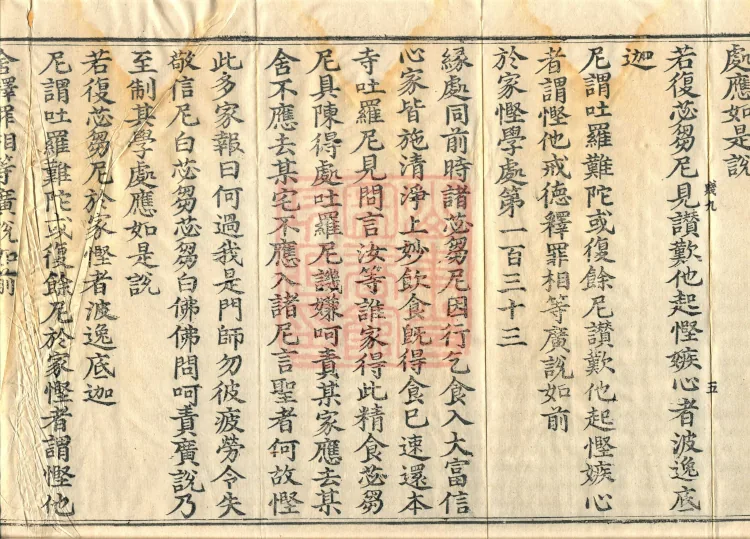 處應如是說
若復苾芻尼見讃歎他起慳嫉心者波逸底
迦
尼謂吐羅難陀或復餘尼讃歎他起慳嫉心
者謂慳他戒德釋罪相等廣說如前
於家慳學處第一百三十三
緣處同前時諸苾芻尼因行乞食入大富信
心家皆施清淨上妙飲食旣得食已速還本
寺吐羅尼見問言汝等誰家得此精食苾芻
尼具陳得處吐羅尼譏嫌呵責某家應去某
舍不應去某宅不應入諸尼言聖者何故慳
此多家報曰何過我是門師勿彼疲勞令失
敬信尼白苾芻苾芻白佛佛問呵責廣說乃
至制其學處應如是說
若復苾芻尼於家慳者波逸底迦
尼謂吐羅難陀或復餘尼於家慳者謂慳他
舍釋罪相等廣說如前
九
五